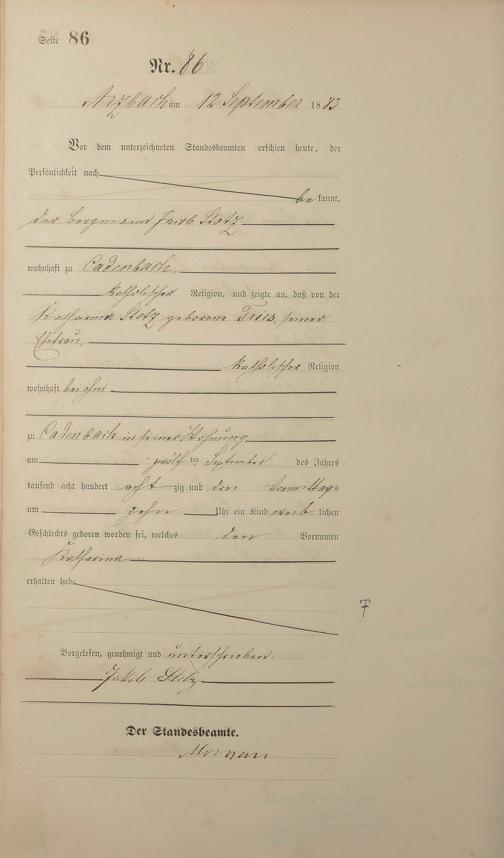 Seite 86
Nr. 86
Arzbach am 12 September 1883
Vor dem unterzeichneten Standesbeamten erschien heute, der
Persönlichkeit nach
be kannt,
der Bergmann Jacob Stotz
wohnhaft zu Cadenbach,
katholischer Religion, und zeigte an, daß von der
Katharina Stotz geborene Fries, seiner
Ehefrau,
katholischer Religion
wohnhaft bei ihm
zu Cadenbach in seiner Wohnung
am zwölf ten September des Jahres
tausend acht hundert acht zig und drei Vormittags
um zehn Uhr ein Kind weib lichen
Geschlechts geboren worden sei, welches den Vornamen
Katharina
erhalten habe
Vorgelesen, genehmigt und unterschrieben.
Jakob Stotz
Der Standesbeamte.